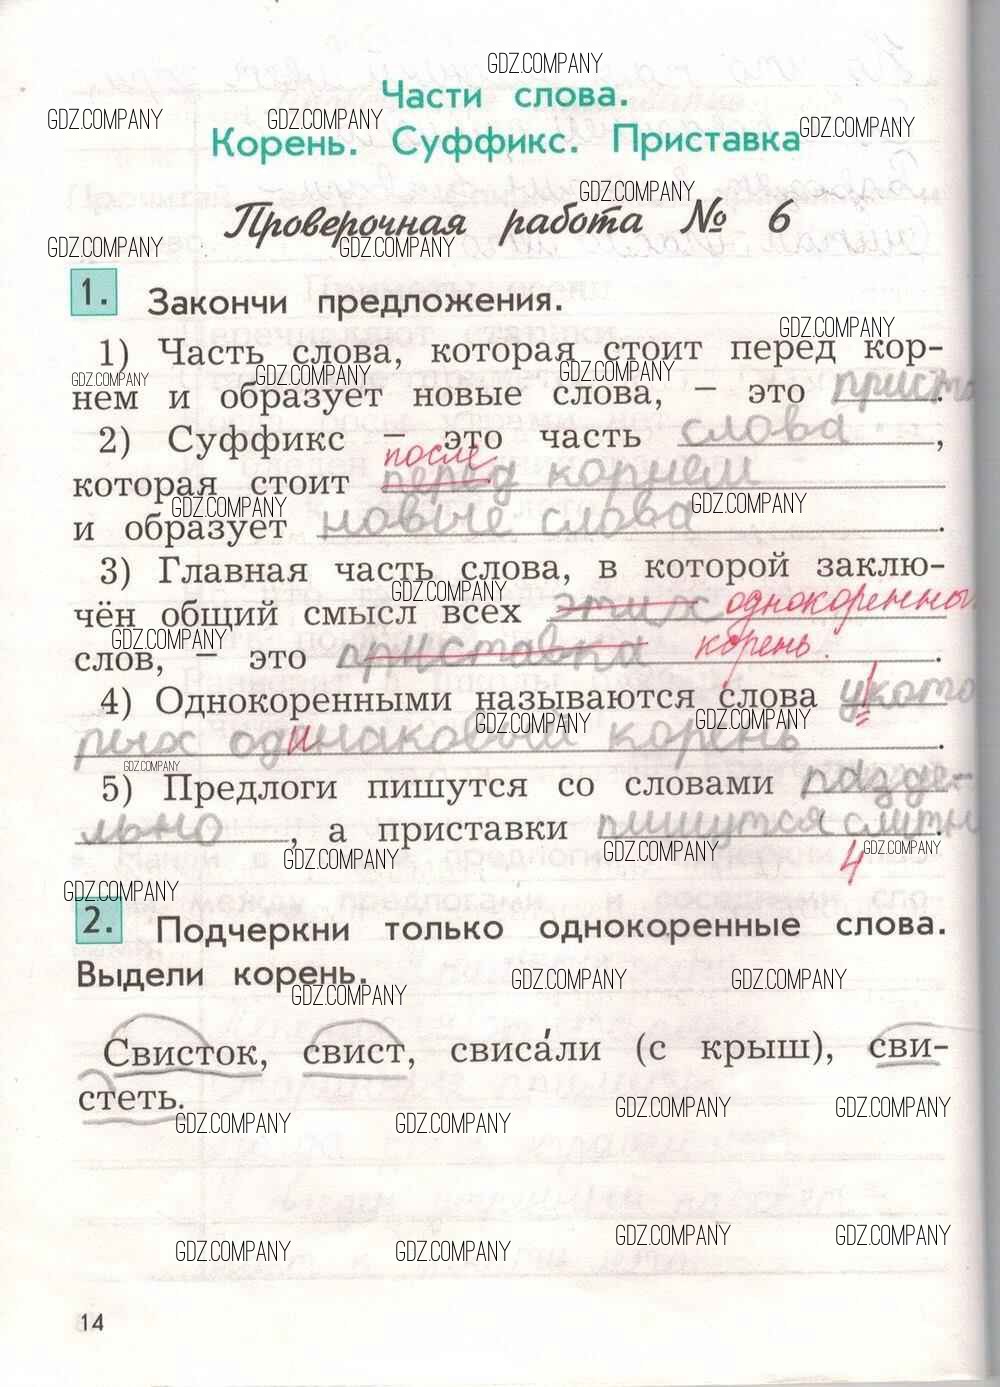 GDZ.COMPANY
Части слова.
GDZ.COMPANY GDZ.COMPANY GDZ.COMPANY
Корень. Суффикс. Приставка
GDZ.COMPANY
Проверочная работа № 6
GDZ.COMPANY GDZ.COMPANY
1. Закончи предложения.
GDZ.COMPANY
1) Часть слова, которая стоит перед кор-
GDZ.COMPANY GDZ.COMPANY GDZ.COMPANY
нем и образует новые слова, – это приста.
2) Суффикс – это часть слова,
после
которая стоит перед корнем
GDZ.COMPANY GDZ.COMPANY
и образует новые слова.
3) Главная часть слова, в которой заклю-
GDZ.COMPANY
чён общий смысл всех этих однокоренны
GDZ.COMPANY
слов, – это приставка корень.
4) Однокоренными называются слова укато
GDZ.COMPANY GDZ.COMPANY
рых одинаковый корень.
GDZ.COMPANY
5) Предлоги пишутся со словами разде-
льно, а приставки пишутся слитн.
GDZ.COMPANY GDZ.COMPANY 4 GDZ.COMPANY
GDZ.COMPANY
2. Подчеркни только однокоренные слова.
Выдели корень.
GDZ.COMPANY GDZ.COMPANY GDZ.COMPANY
Свисток, свист, свиса́ли (с крыш), сви-
стеть.
GDZ.COMPANY GDZ.COMPANY GDZ.COMPANY GDZ.COMPANY
GDZ.COMPANY GDZ.COMPANY GDZ.COMPANY GDZ.COMPANY
14